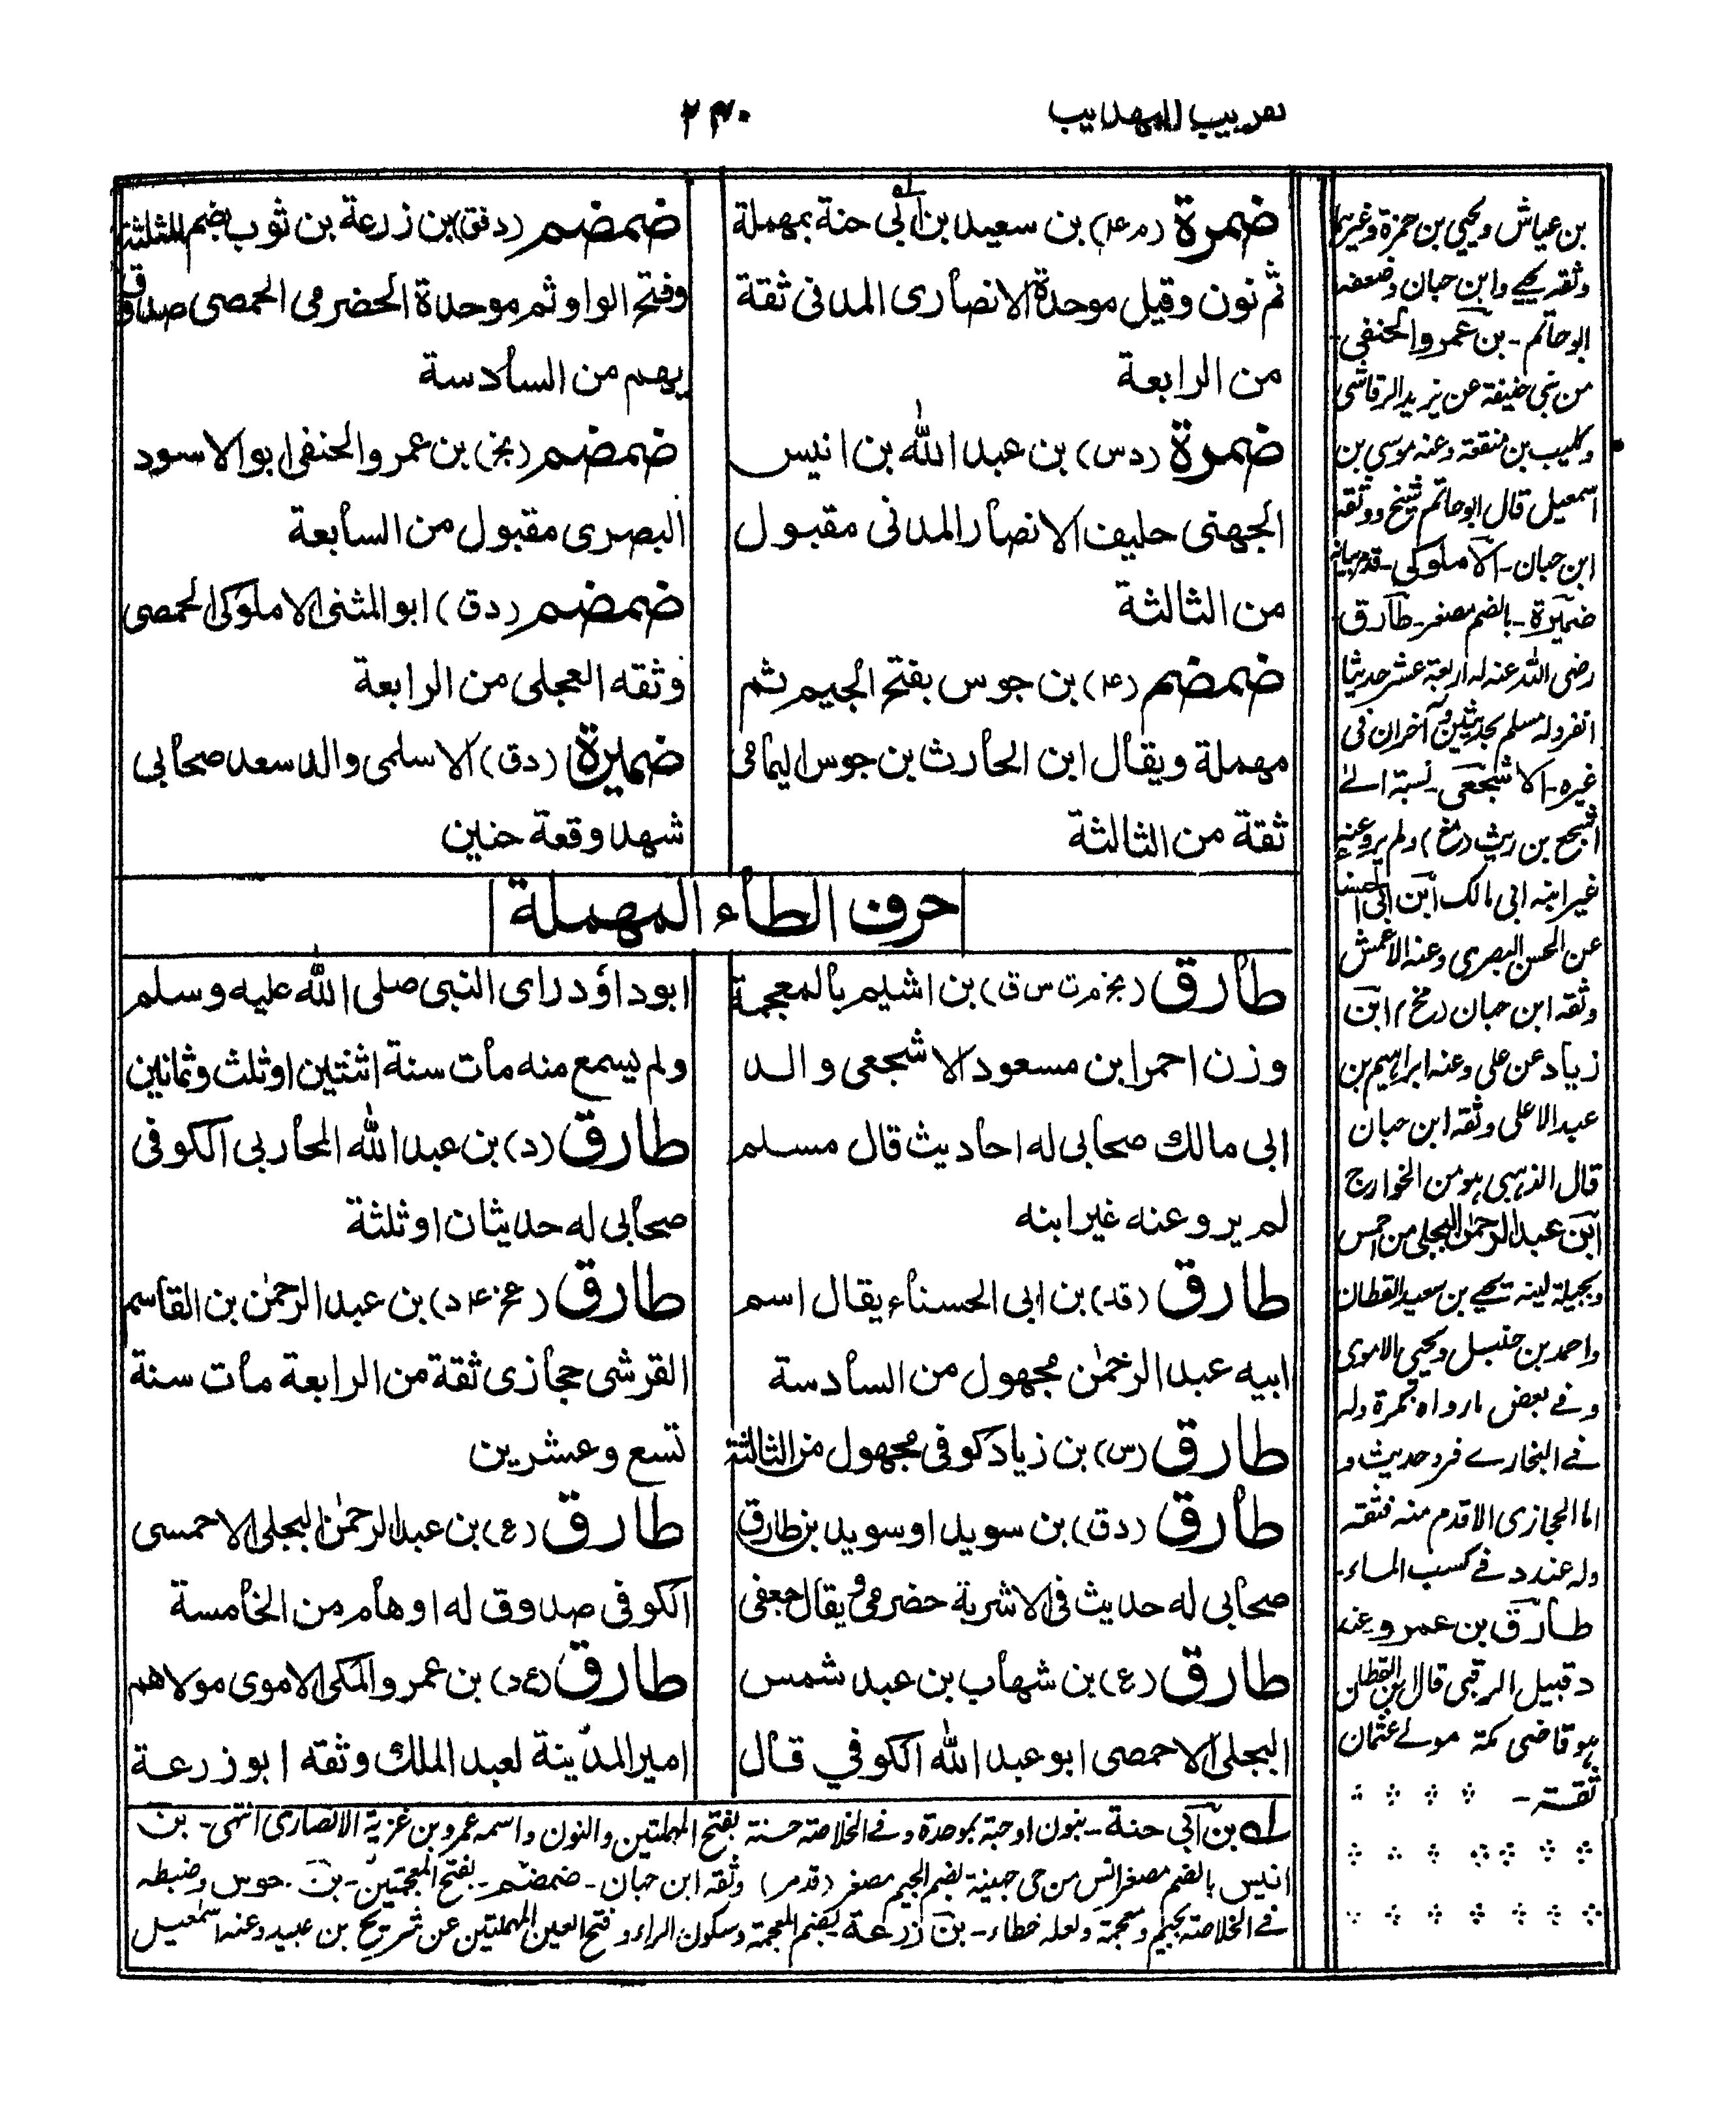 تقريب التهذيب
٢٣٠
ضمرة (م ٤) بن سعيد بن ابى حنة بمهملة
ثم نون وقيل موحدة الانصارى المدنى ثقة
من الرابعة
ضمرة (د س) بن عبد الله بن انيس
الجهنى حليف الانصار المدنى مقبول
من الثالثة
ضمضم (٤) بن جوس بفتح الجيم ثم
مهملة ويقال ابن الحارث بن جوس اليمامى
ثقة من الثالثة
ضمضم (د فق) بن زرعة بن ثوب بضم المثلثة
وفتح الواو ثم موحدة الحضرمى الحمصى صدوق
يهم من السادسة
ضمضم (بخ) بن عمرو الحنفى ابو الاسود
البصرى مقبول من السابعة
ضمضم (د ق) ابو المثنى الاملوكى الحمصى
وثقه العجلى من الرابعة
ضميرة (د ق) الاسلمى والد سعد صحابى
شهد وقعة حنين
حرف الطاء المهملة
طارق (بخ م ت س ق) بن اشيم بالمعجمة
وزن احمر ابن مسعود الاشجعى والد
ابى مالك صحابى له احاديث قال مسلم
لم يرو عنه غير ابنه
طارق (قد) بن ابى الحسناء يقال اسم
ابيه عبد الرحمٰن مجهول من السادسة
طارق (س) بن زياد كوفى مجهول من الثالثة
طارق (د ق) بن سويد او سويد بن طارق
صحابى له حديث فى الاشربة حضرمى ويقال جعفى
طارق (ع) بن شهاب بن عبد شمس
البجلى الاحمصى ابو عبد الله الكوفي قال
ابو داؤد راى النبى صلى الله عليه وسلم
ولم يسمع منه مات سنة اثنتين او ثلث وثمانين
طارق (د) بن عبد الله المحاربى الكوفى
صحابى له حديثان او ثلثة
طارق (عخ ٤ د) بن عبد الرحمٰن بن القاسم
القرشى حجازى ثقة من الرابعة مات سنة
تسع وعشرين
طارق (ع) بن عبد الرحمٰن البجلى الاحمسى
الكوفى صدوق له اوهام من الخامسة
طارق (ع د) بن عمرو المكى الاموى مولاهم
امير المدينة لعبد الملك وثقه ابو زرعة
له بن ابى حنة - بنون او حبة بموحدة وفے الخلاصة حسنة بفتح المهملتين والنون واسمه عمرو بن غزية الانصارى انتهى - بن
انيس بالضم مصغر انس من حى جهينة بضم الجيم مصغر (قدمر) وثقه ابن حبان - ضمضم - بفتح المعجمتين - بن جوس وضبطه
فے الخلاصة بجيم ومعجمة ولعله خطاء - بن زرعة - بضم المعجمة وسكون الراء وفتح العين المهملتين عن شريح بن عبيد وعنه اسمٰعيل
بن عياش ويحيى بن حمزة وغيرهما
وثقه يحيے وابن حبان وضعفه
ابو حاتم - بن عمرو الحنفى -
من بنى حنيفة عن يزيد الرقاشى
وكليب بن منقعة وعنه موسى بن
اسمعيل قال ابو حاتم شيخ ووثقه
ابن حبان - الاملوكى - قدمر بيانه
ضميرة - بالضم مصغر - طارق
رضى الله عنه له اربعة عشر حديثا
انفرد له مسلم بحديثين وآخران فى
غيره - الاشجعى - نسبة الے
اشجع بن ريث (مغ) ولم يرو عنه
غير ابنه ابى مالك ابن ابى الحسنا
عن الحسن البصرى وعنه الاعمش
وثقه ابن حبان (مخ) ابن
زياد عن على وعنه ابراهيم بن
عبد الاعلى وثقه ابن حبان
قال الذهبى هو من الخوارج
ابن عبد الرحمٰن البجلى من احمس
وبجيلة لينه يحيے بن سعيد القطان
واحمد بن حنبل ويحيى الاموى
وفے بعض ما رواه بحمرة وله
فے البخارے فرد حديث و
اما الحجازى الاقدم منه فثقة
وله عند د فے كسب الماء -
طارق بن عمرو عنه
د قبيل الرقى قال ابن القطان
هو قاضى مكة مولے عثمان
ثقة -